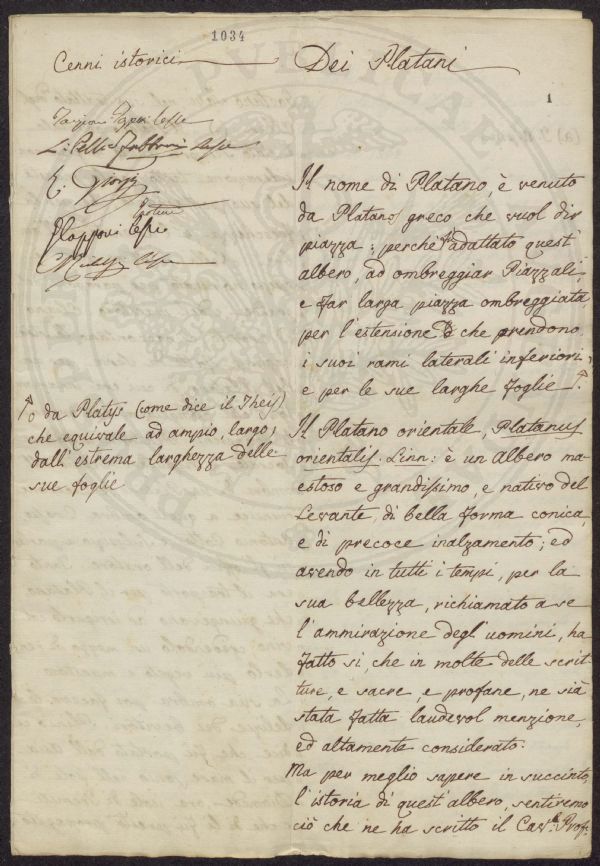 1034
Cenni istorici Dei Platani
1
lesse
L: Pelli Fabbroni lesse
Il nome di Platano, è venuto
da Platano greco che vuol dir
piazza; perchè adattato quest'
albero, ad ombreggiar Piazzali,
e far larga piazza ombreggiata
per l'estensione che prendono
i suoi rami laterali inferiori,
e per le sue larghe foglie.
o da Platys (come dice il Theis)
che equivale ad ampio, largo;
dall'estrema larghezza delle
sue foglie
Il Platano orientale, Platanus
orientalis. Linn: è un Albero ma-
estoso e grandissimo, e nativo del
Levante, di bella forma conica,
e di precoce inalzamento; ed
avendo in tutti i tempi, per la
sua bellezza, richiamato a se
l'ammirazione degl'uomini, ha
fatto si, che in molte delle scrit-
ture, e sacre, e profane, ne sia
stata fatta laudevol menzione,
ed altamente considerato.
Ma per meglio sapere in succinto,
l'istoria di quest'albero, sentiremo
ciò che ne ha scritto il Cav.e Prof.